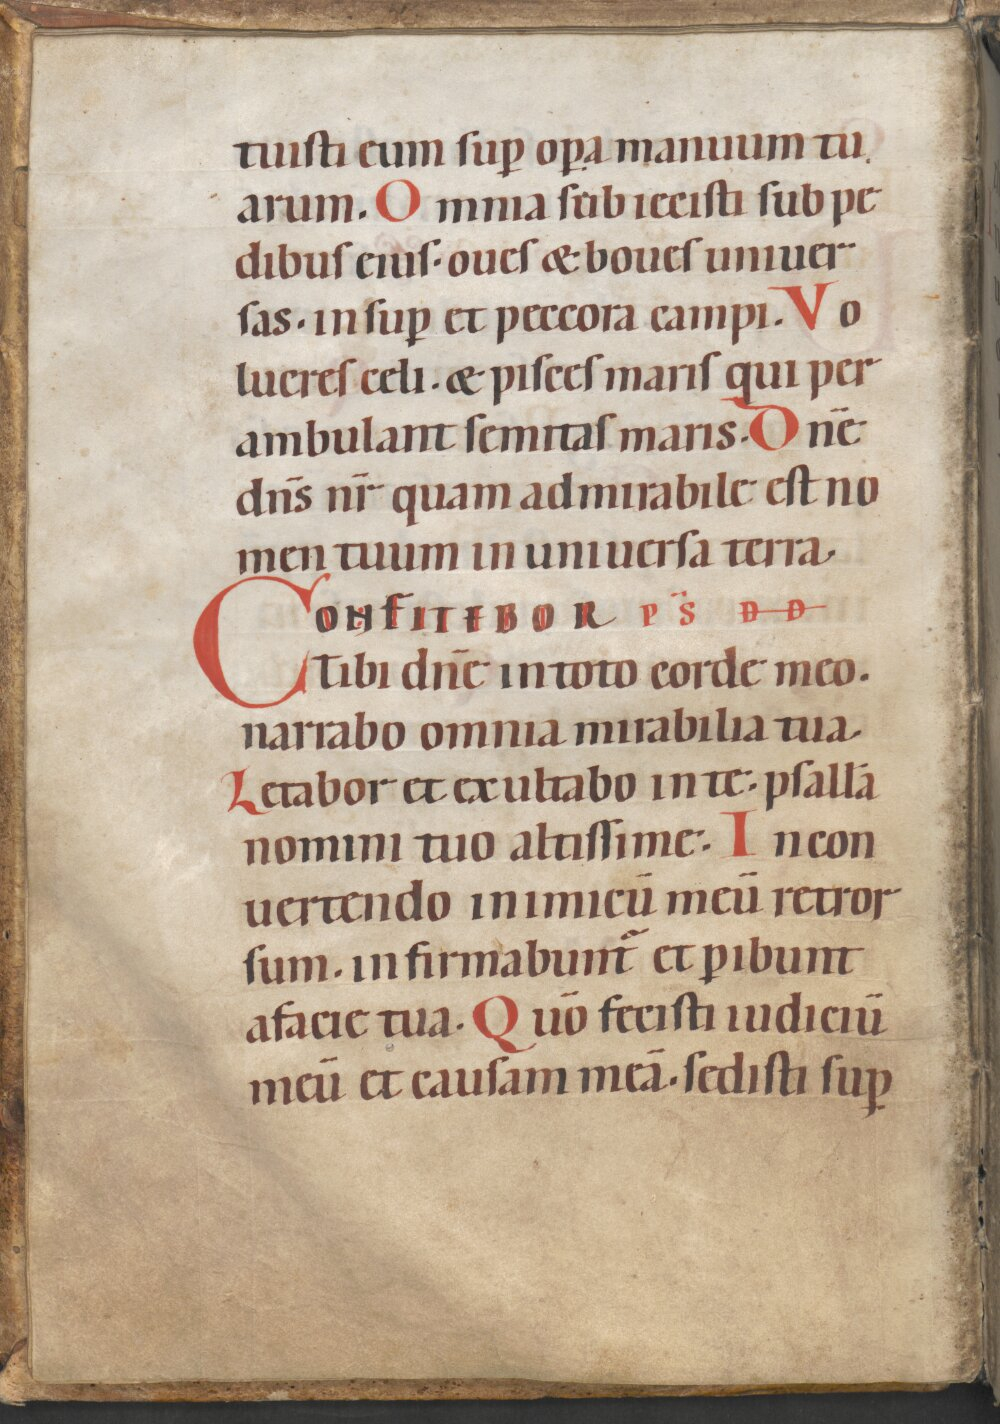 tuisti eum sup̱ op̱a manuum tu
arum. Omnia subiecisti sub pe
dibus eius. oues & boues uniuer
sas. insup̱ et peccora campi. Vo
lucres celi. & pisces maris qui per
ambulant semitas maris. Dn̄e
dn̄s nr̄ quam admirabile est no
men tuum in uniuersa terra.
CONFITEBOR PS̄ DD
Tibi dn̄e in toto corde meo.
narrabo omnia mirabilia tua.
Letabor et exultabo in te. psallā
nomini tuo altissime. In con
uertendo inimicū meū retror
sum. infirmabunt᷑ et p̱ibunt
afacie tua. Quō fecisti iudiciū
meū et causam meā. sedisti sup̱